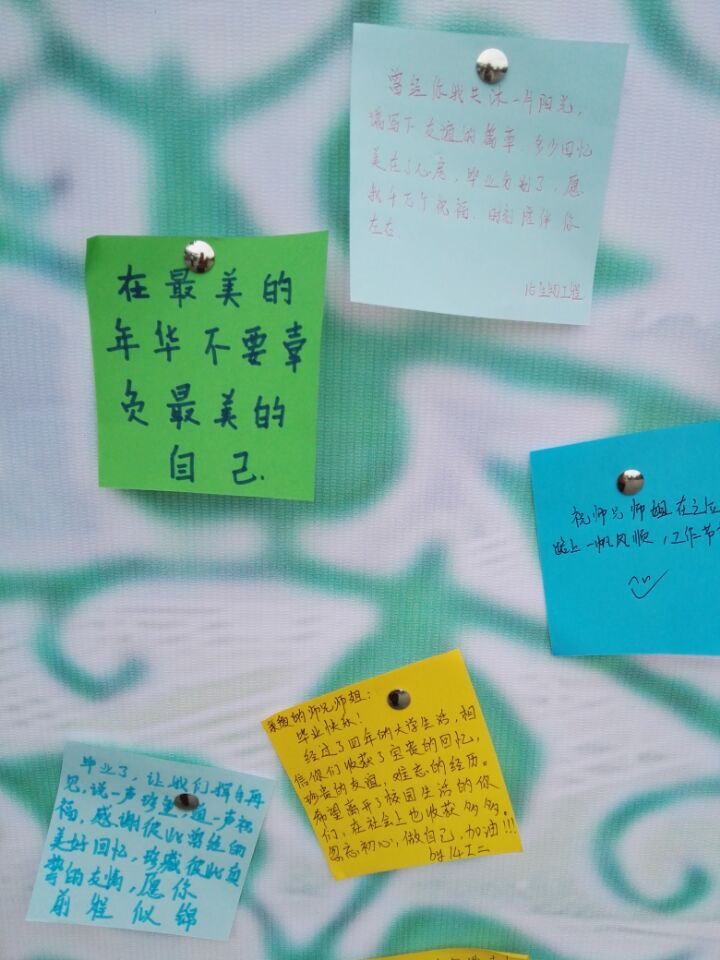 曾经你我共沐一片阳光，
填写下友谊的篇章 多少回忆
美在了心底，毕业分别了，愿
我千万个祝福，时刻陪伴你
左右
15生物工程
在最美的
年华不要辜
负最美的
自己.
祝师兄师姐在之后
路上一帆风顺，工作节
亲爱的师兄师姐：
毕业快乐！
经过了四年的大学生活，相
信你们收获了宝贵的回忆，
珍贵的友谊，难忘的经历。
希望离开了校园生活的你
们，在社会上也收获多多。
勿忘初心，做自己，加油!!!
by 14工二
毕业了，让我们挥手再
见，说一声珍重，道一声祝
福，感谢彼此曾经的
美好回忆，珍藏彼此真
挚的友情，愿你
前程似锦